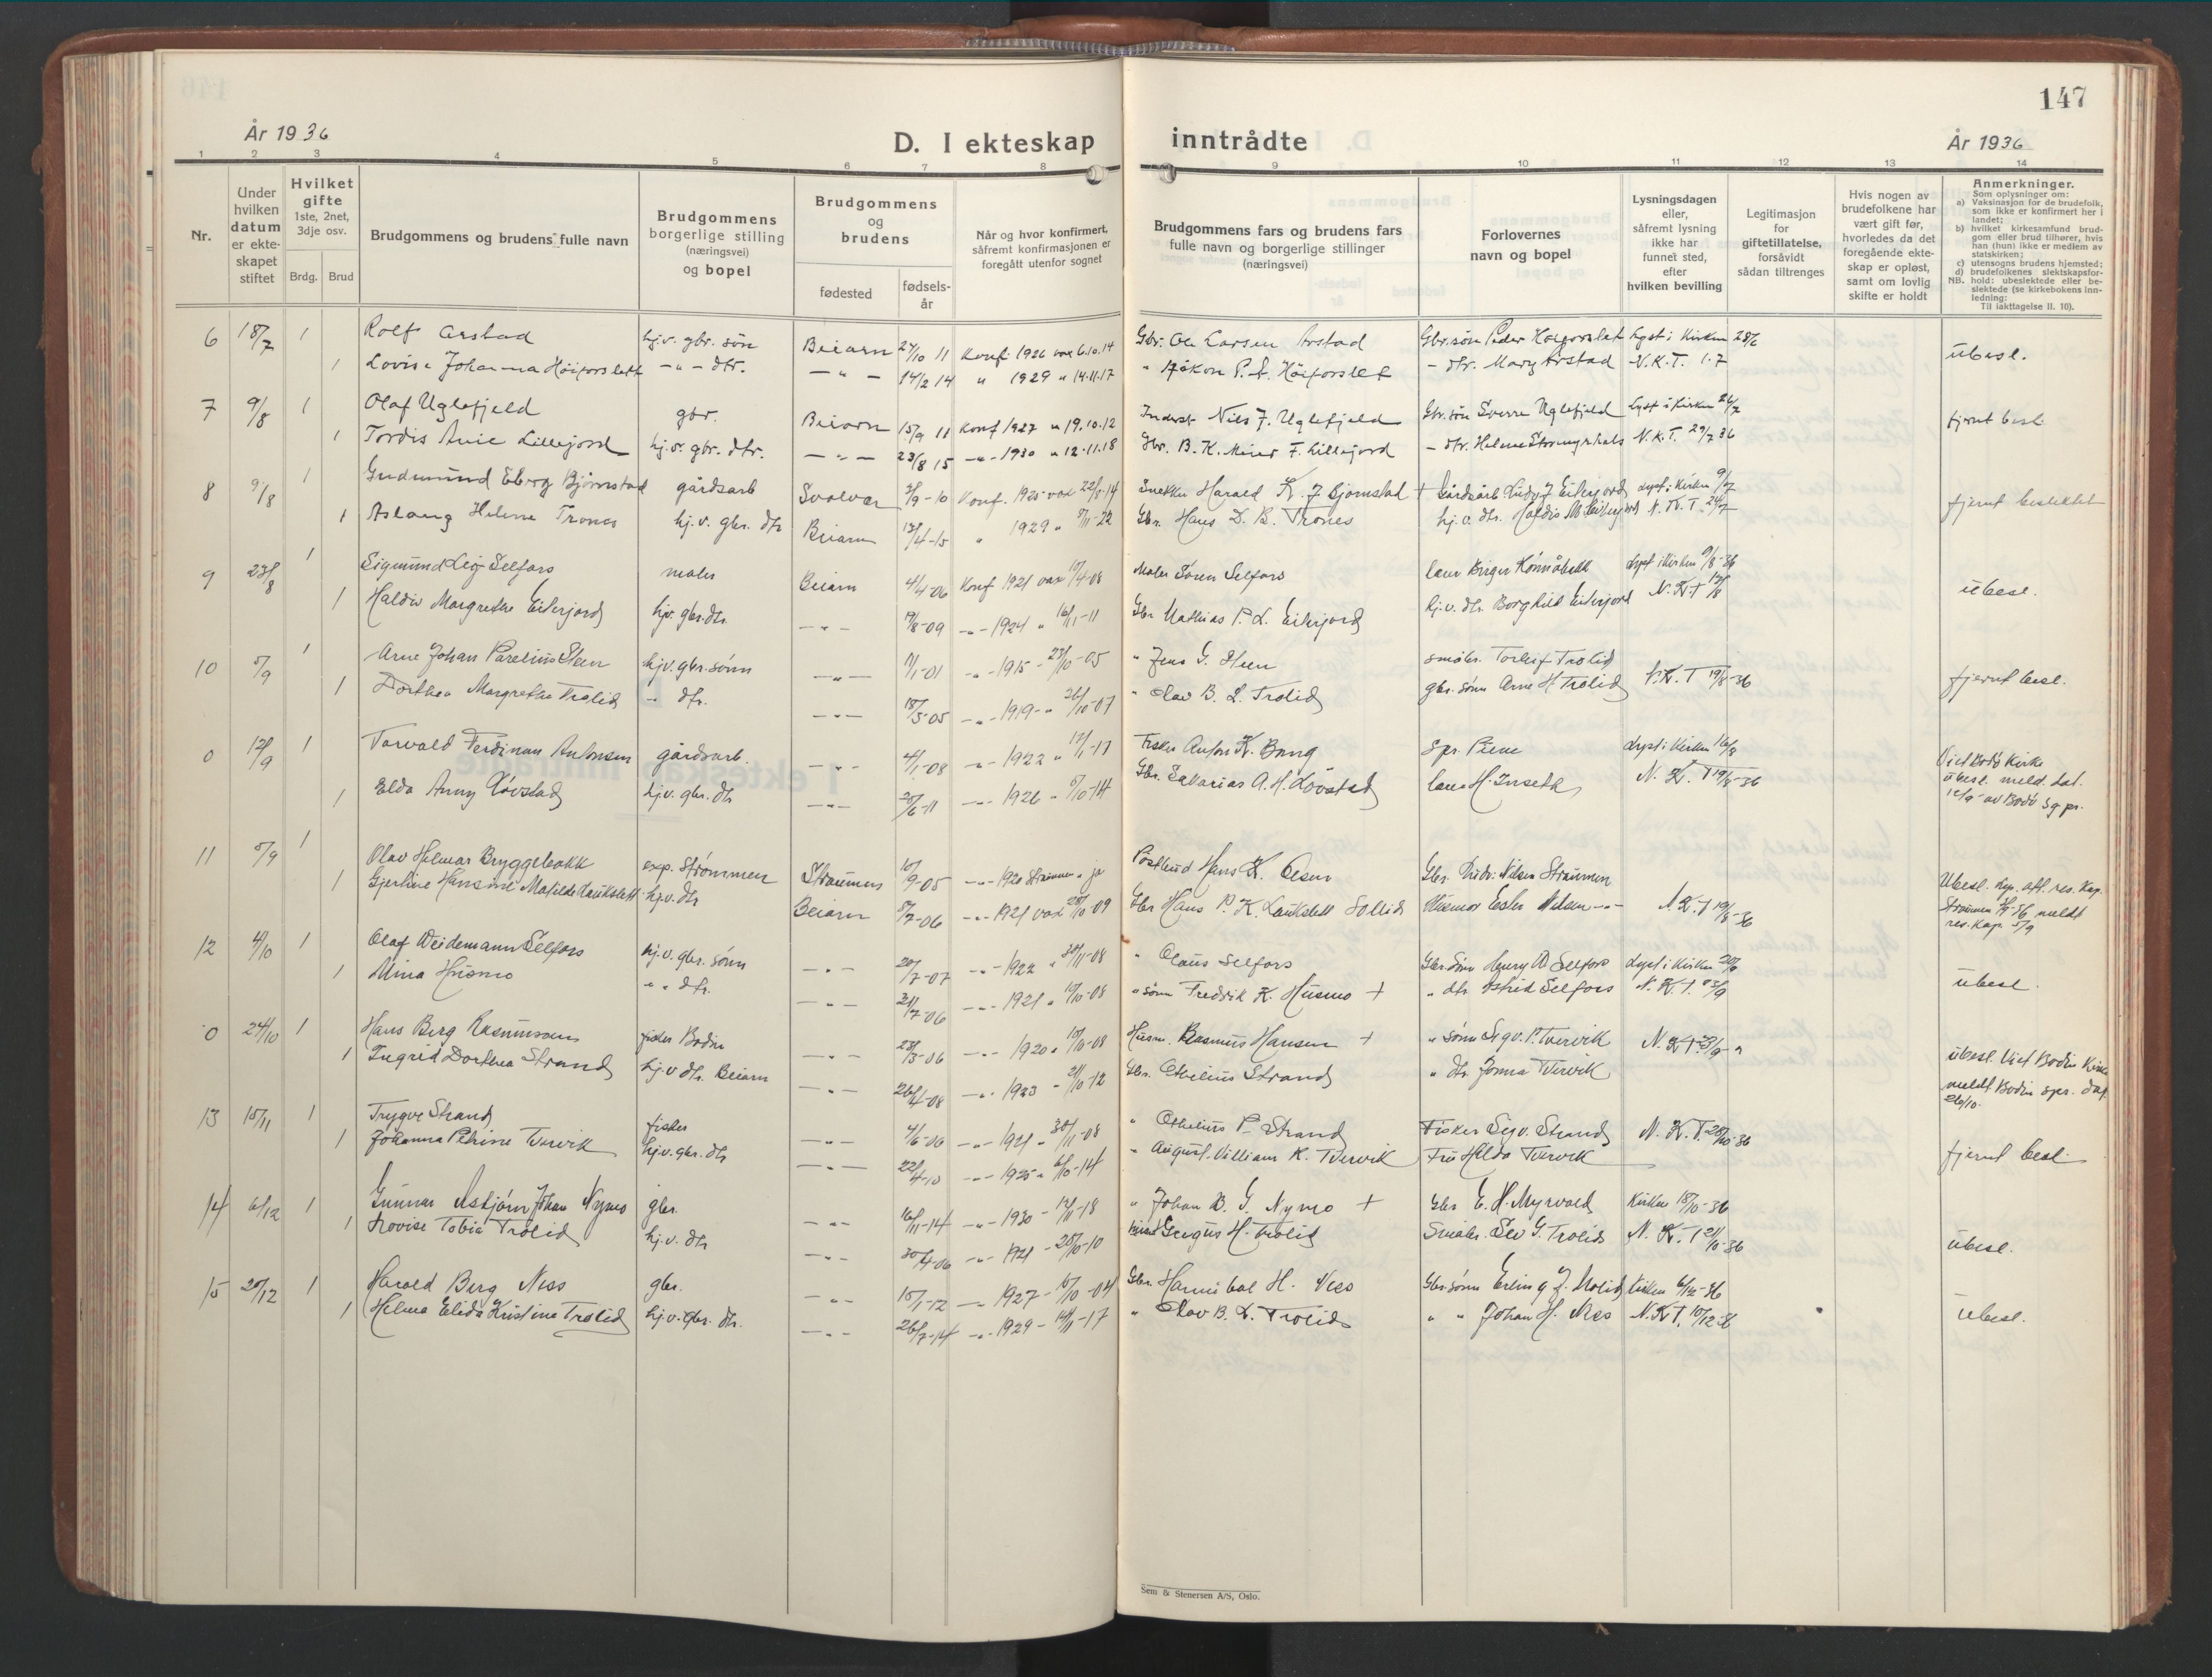 147
År 1936
D. I ekteskap inntrådte
År 1936
1 2 3 4 5 6 7 8 9 10 11 12 13 14
Nr.
Under hvilken datum er ekteskapet stiftet
Hvilket gifte 1ste, 2net, 3dje osv.
Brdg. Brud
Brudgommens og brudens fulle navn
Brudgommens borgerlige stilling (næringsvei) og bopel
Brudgommens og brudens
fødested fødselsår
Når og hvor konfirmert, såfremt konfirmasjonen er foregått utenfor sognet
Brudgommens fars og brudens fars fulle navn og borgerlige stillinger (næringsvei)
Forlovernes navn og bopel
Lysningsdagen eller, såfremt lysning ikke har funnet sted, efter hvilken bevilling
Legitimasjon for giftetillatelse, forsåvidt sådan tiltrenges
Hvis nogen av brudefolkene har vært gift før, hvorledes da det foregående ekteskap er opløst, samt om lovlig skifte er holdt
Anmerkninger.
Som oplysninger om:
a) Vaksinasjon for de brudefolk, som ikke er konfirmert her i landet;
b) hvilket kirkesamfund brudgom eller brud tilhører, hvis han (hun) ikke er medlem av statskirken;
c) utensogns brudens hjemsted;
d) brudefolkenes slektskapsforhold: ubeslektede eller beslektede (se kirkebokens innledning:
NB. Til iakttagelse II. 10).
6 18/7 1 Rolf Arstad hj.v. gbr. søn Beiarn 27/10 11 Konf. 1926 vax 6.10.14 Gbr. Ole Larsen Arstad Gbr. søn Peder Høiforslet Lyst i Kirken 28/6
1 Lovise Johanna Høiforslett -"- dtr. -"- 14/2 14 " 1929 " 14.11.17 " Håkon P. Høiforslet - dtr. Mary Arstad N.K.T. 1.7 ubesl.
7 9/8 1 Olaf Uglefjeld gbr. Beiarn 15/9 11 Konf 1927 " 19.10.12 Inderst Nils J. Uglefjeld Gbr. søn Sverre Uglefjeld Lyst i Kirken 26/7 fjernt besl.
1 Tordis Anie Lillejord hj.v. gbr. dtr. -"- 23/8 15 -"- 1930 " 12.11.18 Gbr. B. K. Meier F. Lillejord - dtr. Helene N.K.T. 29/7 36
8 9/8 1 Gudmund Eberg Bjørnstad gårdsarb Svolvær 3/9-10 Konf. 1925 vax Snekker Harald K. J Bjørnstad + Gårdsarb Ludv J Eiterjord Lyst i Kirken 9/7 fjernt beslektet
1 Aslaug Helene Trones hj.v. gbr. dtr Beiarn 13/4-15 " 1929 " 8/11-22 Gbr. Hans L. B. Trones hj.v. dtr. Haldis M Eiterjord N.K.T. 24/7
9 23/8 1 Sigmund Leif Selfors maler Beiarn 4/4-06 Konf 1921 vax 17/4-08 Maler Søren Selfors Birger Lyst i Kirken 9/8-36
1 Haldis Margrethe Eiterjord hjv. gbr. dtr. -"- 19/8-09 -"- 1924 " 16/11-11 Gbr Mathias P. L. Eiterjord hj.v. dtr. Borghild Eiterjord N.K.T ubesl.
10 5/9 1 Arne Johan Parelius Steen hjv. gbr. sønn -"- 11/1-01 -"- 1915 - 23/10-05 " Jens G. Steen småbr. Torleif Trolid
1 Dorthea Margrethe Trolid -"- dtr. -"- 18/5-05 -"- 1919 - " 26/10-07 " Olav B. L. Trolid gbr. sønn Arne H Trolid N.K.T 19/8-36 fjernt besl.
0 12/9 1 Torvald Ferdinan Antonsen gårdsarb. -"- 4/1-08 -"- 1922 " 12/1-17 Fisker Anton K. Bang Spr. Piene Lyst i Kirken 16/8 Viet Bodø Kirke
1 Elda Anny Løvstad hj.v. gbr. dtr -"- 25/6-11 -"- 1926 " 5/10-14 Gbr. Sakarias A. H. Løvstad H. Inseth N.K.T 19/8-36 ubesl. meld. dat. 12/9 av Bodø sg pr.
11 5/9 1 Olav Helmar Bryggebakk exp. Strømmen Straumen 10/9-05 -"- 1920 Straumen " ja Postbud Hans K. Olsen Gbr. Ludv. Nilsen Straumen
1 Gjertine Hansine Matilde Laukslett hj.v. dtr Beiarn 5/7-06 -"- 1921 vax 28/10-09 Gbr Hans P. K. Laukslett Sollid Husmor Ester Nilsen -"- N.K.T 19/8-36 Ubesl. Lys. att. res. Kap. Straumen meldt res. Kap 5/9
12 4/10 1 Olaf Weidemann Selfors hj.v. gbr. sønn -"- 20/7-07 -"- 1922 " 30/11-08 " Olaus Selfors Gbr. sønn Henry A Selfors Lyst i Kirken 20/9
1 Mina Husmo " " dtr. -"- 31/7-06 -"- 1921 " 19/10-08 " sønn Fredrik K. Husmo + " dtr Astrid Selfors N.K.T. 23/9 ubesl.
0 24/10 1 Hans Berg Rasmussen fisker Bodin -"- 28/3-06 -"- 1920 " 10/10-08 Husm. Rasmus Hansen + " sønn Sigv. P. Tvervik N.K.T 23/9
1 Ingrid Dorthea Strand hj.v dtr. Beiarn -"- 26/4-08 -"- 1923 - 21/10-12 Gbr. Othelius Strand " dtr. Jonna Tvervik ubesl. Viet Bodin Kirke meldt. Bodin spr. dat 26/10.
13 15/11 1 Trygve Strand fisker -"- 4/6-06 -"- 1921 " 30/11-08 " Othelius P. Strand Fisker Sigv. Strand N.K.T. 28/10-36
1 Johanna Petrine Tvervik hj.v. gbr. dtr -"- 22/4-10 -"- 1925 " 6/10-14 " August Villiam K. Tvervik Fru Hilda Tvervik fjernt besl.
14 6/12 1 Gunnar Asbjørn Johan Nymo gbr. -"- 16/11-14 -"- 1930 - 12/11-18 " Johan B. G. Nymo + Gbr E. H. Myrvold Kirken 18/10-36
1 Lovise Tobia Trolid hj.v. dtr -"- 30/4-06 -"- 1921 - 28/10-10 H. Trolid Småbr. G. Trolid N.K.T 21/10-36 ubesl.
15 20/12 1 Harald Berg Ness gbr. -"- 15/1-12 -"- 1927 - Gbr. Hannibal H. Nes Gbr. sønn Erling J. Kirken 6/12-36
1 Helma Elida Kristine Trolid hj.v. gbr. dtr. -"- 26/7-14 -"- 1929 - 14/11-17 " Olav B. L. Trolid " " Johan H. Nes N.K.T. 10/12-36 ubesl.
Sem & Stenersen A/S, Oslo.